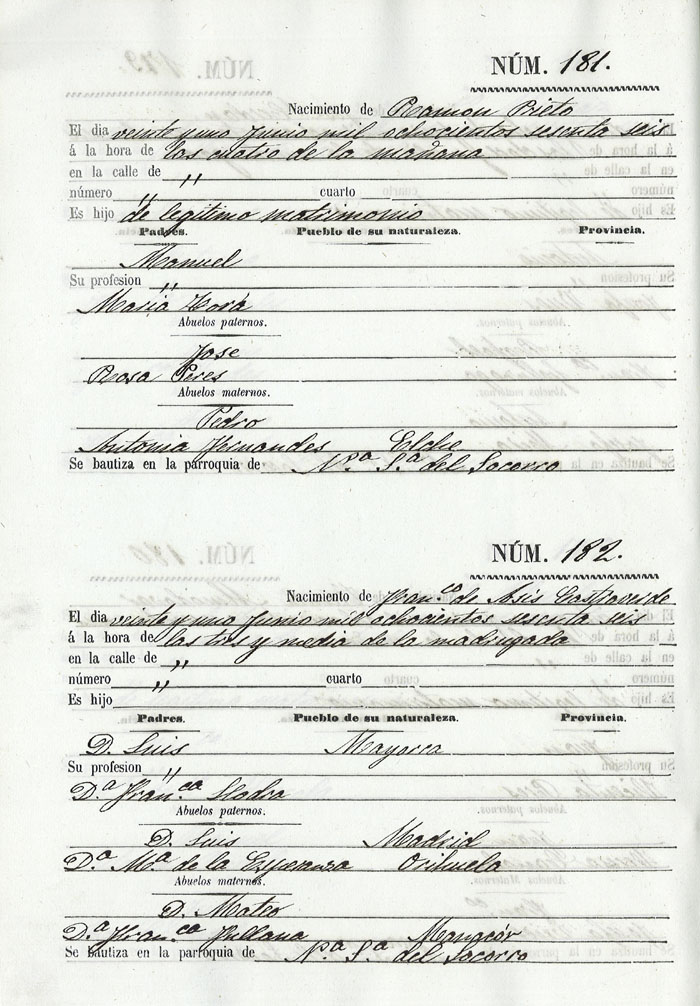 NÚM. 181.
Nacimiento de Ramon Prieto
El dia veinte y uno Junio mil ochocientos sesenta seis
á la hora de las cuatro de la mañana
en la calle de "
número " cuarto
Es hijo de legitimo matrimonio
Padres. Pueblo de su naturaleza. Provincia.
Manuel
Su profesion "
Maria Zora
Abuelos paternos.
Jose
Rosa Peres
Abuelos maternos.
Pedro
Antonia Fernandes Elche
Se bautiza en la parroquia de N.ª S.ª del Socorro
NÚM. 182.
Nacimiento de Fran.co de Asis
El dia veinte y uno Junio mil ochocientos sesenta seis
á la hora de las tres y media de la madrugada
en la calle de "
número " cuarto
Es hijo
Padres. Pueblo de su naturaleza. Provincia.
D. Luis Mayorca
Su profesion "
D.ª Fran.ca Llodra
Abuelos paternos.
D. Luis Madrid
D.ª M.ª de la Esperanza Orihuela
Abuelos maternos.
D. Mateo
D.ª Fran.ca Fullana Manacór
Se bautiza en la parroquia de N.ª S.ª del Socorro